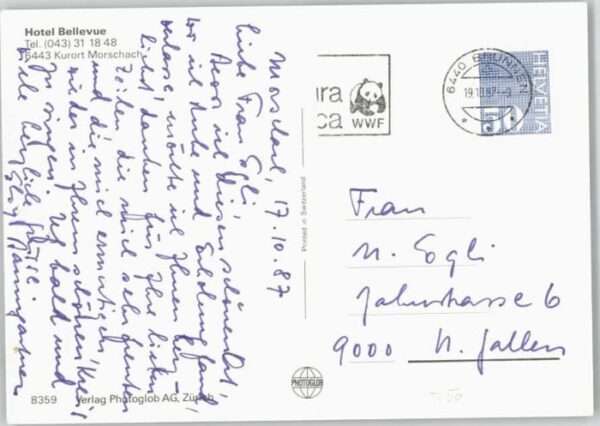 Hotel Bellevue
Tel. (043) 31 18 48
6443 Kurort Morschach
Morschach, 17.10.87
Liebe Frau Egli,
Bevor ich diesen schönen Ort,
wo ich Ruhe und Erholung fand,
verlasse, möchte ich Ihnen herz-
lichst danken für Ihre lieben
Zeilen, die mich sehr freuten
und die mich ermutigen,
wieder in Ihrem schönen Kreis
zu singen. Auf bald und
viele herzliche Grüsse
Baumgartner
ura
ca
WWF
6440 BRUNNEN
19.10.87
HELVETIA
Printed in Switzerland
Frau
M. Egli
Jahnstrasse 6
9000 St. Gallen
PHOTOGLOB
8359 Verlag Photoglob AG, Zürich